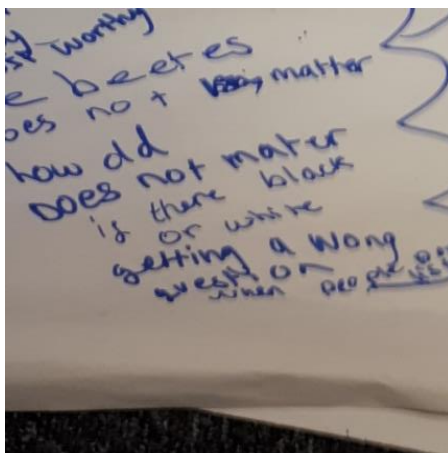 worthy
beetes
does no t matter
how dd
Does not mater
is there black
or white
getting a wong
question
when people